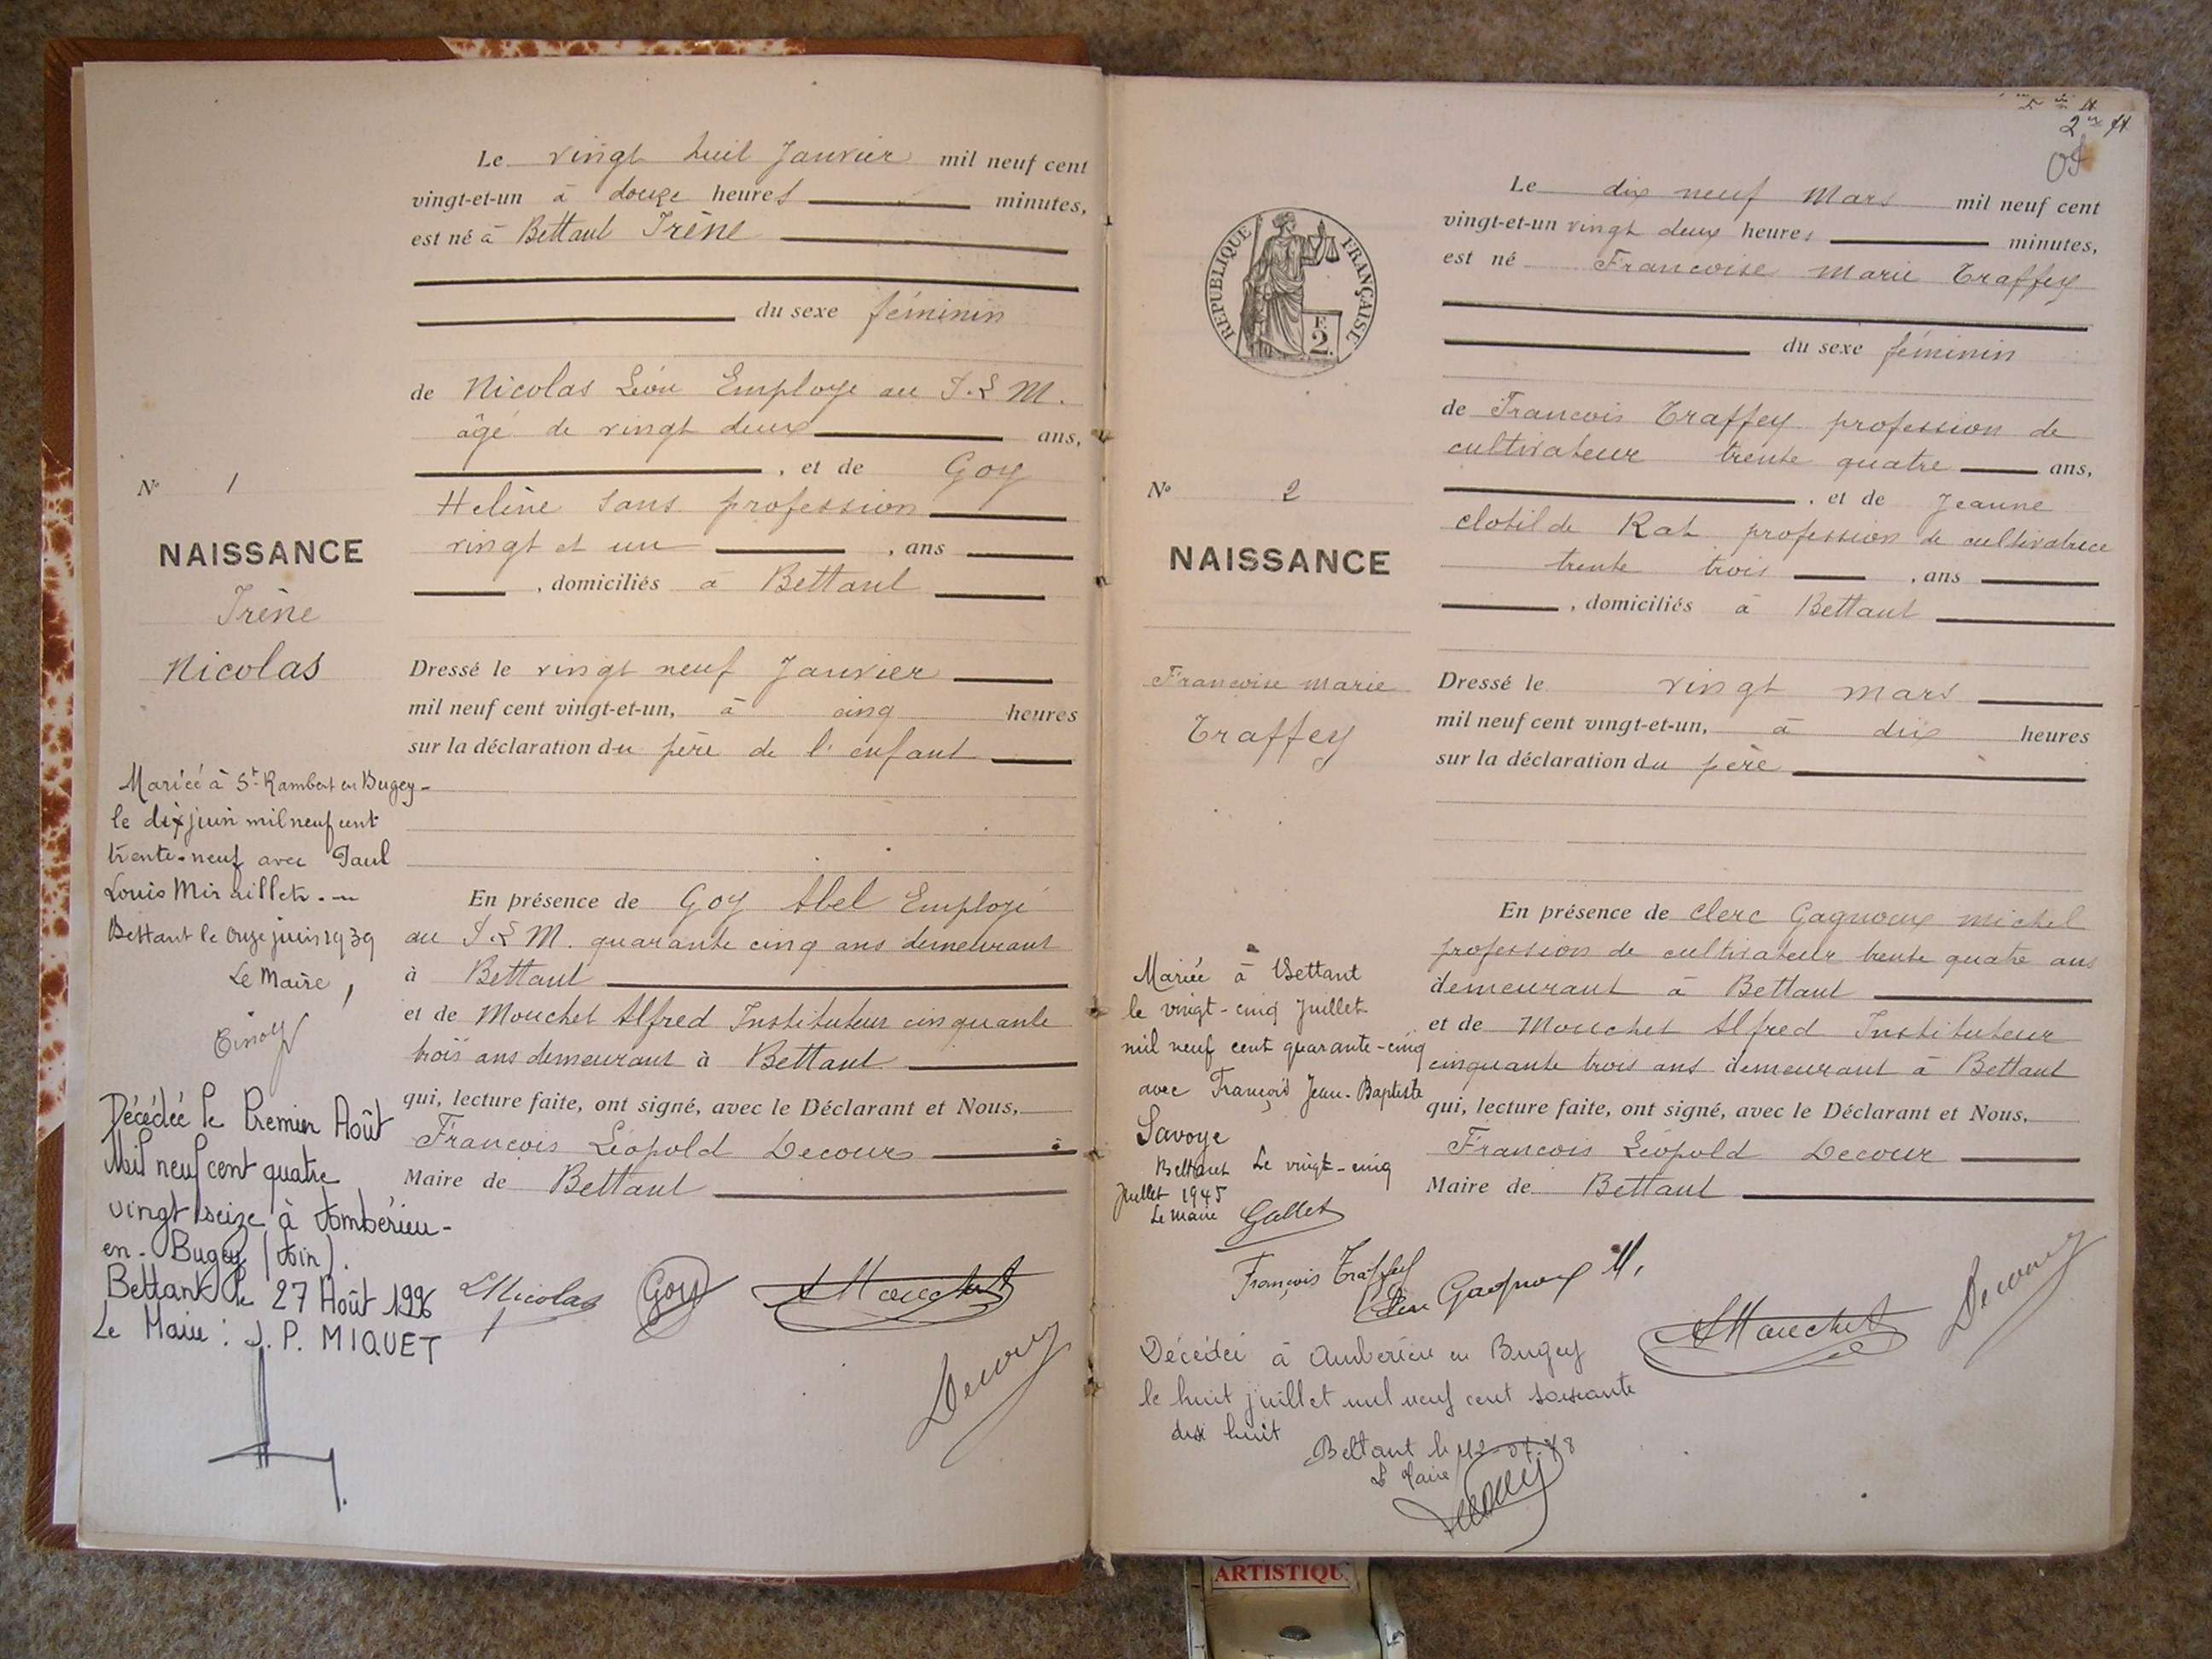 Le vingt huit Janvier mil neuf cent
vingt-et-un à douze heures minutes,
est né à Bettant Irène
du sexe féminin
de Nicolas Léon Employé au P.L M.
âgé de vingt deux ans,
, et de Goy
Helène sans profession
vingt et un , ans
, domiciliés à Bettant
N° 1
NAISSANCE
Irène
Nicolas
Dressé le vingt neuf Janvier
mil neuf cent vingt-et-un, à cinq heures
sur la déclaration du père de l'enfant
En présence de Goy Abel Employé
au P.L M. quarante cinq ans demeurant
à Bettant
et de Mouchet Alfred Instituteur cinquante
trois ans demeurant à Bettant
qui, lecture faite, ont signé, avec le Déclarant et Nous,
Francois Léopold Decour
Maire de Bettant
Mariée à St Rambert en Bugey
le dix juin mil neuf cent
trente-neuf avec Paul
Louis
Bettant le onze juin 1939
Le Maire,
Décédée le Premier Août
Mil neuf cent quatre
vingt seize à Ambérieu-
en-Bugey (Ain).
Bettant le 27 Août 1996
Le Maire : J. P. MIQUET
LNicolas Goy AMouchet
Decour
2
Le dix neuf Mars mil neuf cent
vingt-et-un vingt deux heures minutes,
est né Francoise Marie Traffey
du sexe féminin
REPUBLIQUE FRANÇAISE
F.
2.
de Francois Traffey profession de
cultivateur trente quatre ans,
, et de Jeanne
clotilde Rat profession de cultivatrice
trente trois , ans
, domiciliés à Bettant
N° 2
NAISSANCE
Francoise Marie
Traffey
Dressé le vingt mars
mil neuf cent vingt-et-un, à dix heures
sur la déclaration du père
En présence de Clerc Gagnoux Michel
profession de cultivateur trente quatre ans
demeurant à Bettant
et de Mouchet Alfred Instituteur
cinquante trois ans demeurant à Bettant
qui, lecture faite, ont signé, avec le Déclarant et Nous,
Francois Léopold Decour
Maire de Bettant
Mariée à Bettant
le vingt-cinq Juillet
mil neuf cent quarante-cinq
avec François Jean-Baptiste
Savoye
Bettant Le vingt-cinq
Juillet 1945
Le maire Gallet
François Traffey
Clerc Gagnoux M,
AMouchet Decour
Décédée à Ambérieu en Bugey
le huit juillet mil neuf cent soixante
dix huit
Bettant le 12-07-78
Le Maire
ARTISTIQU